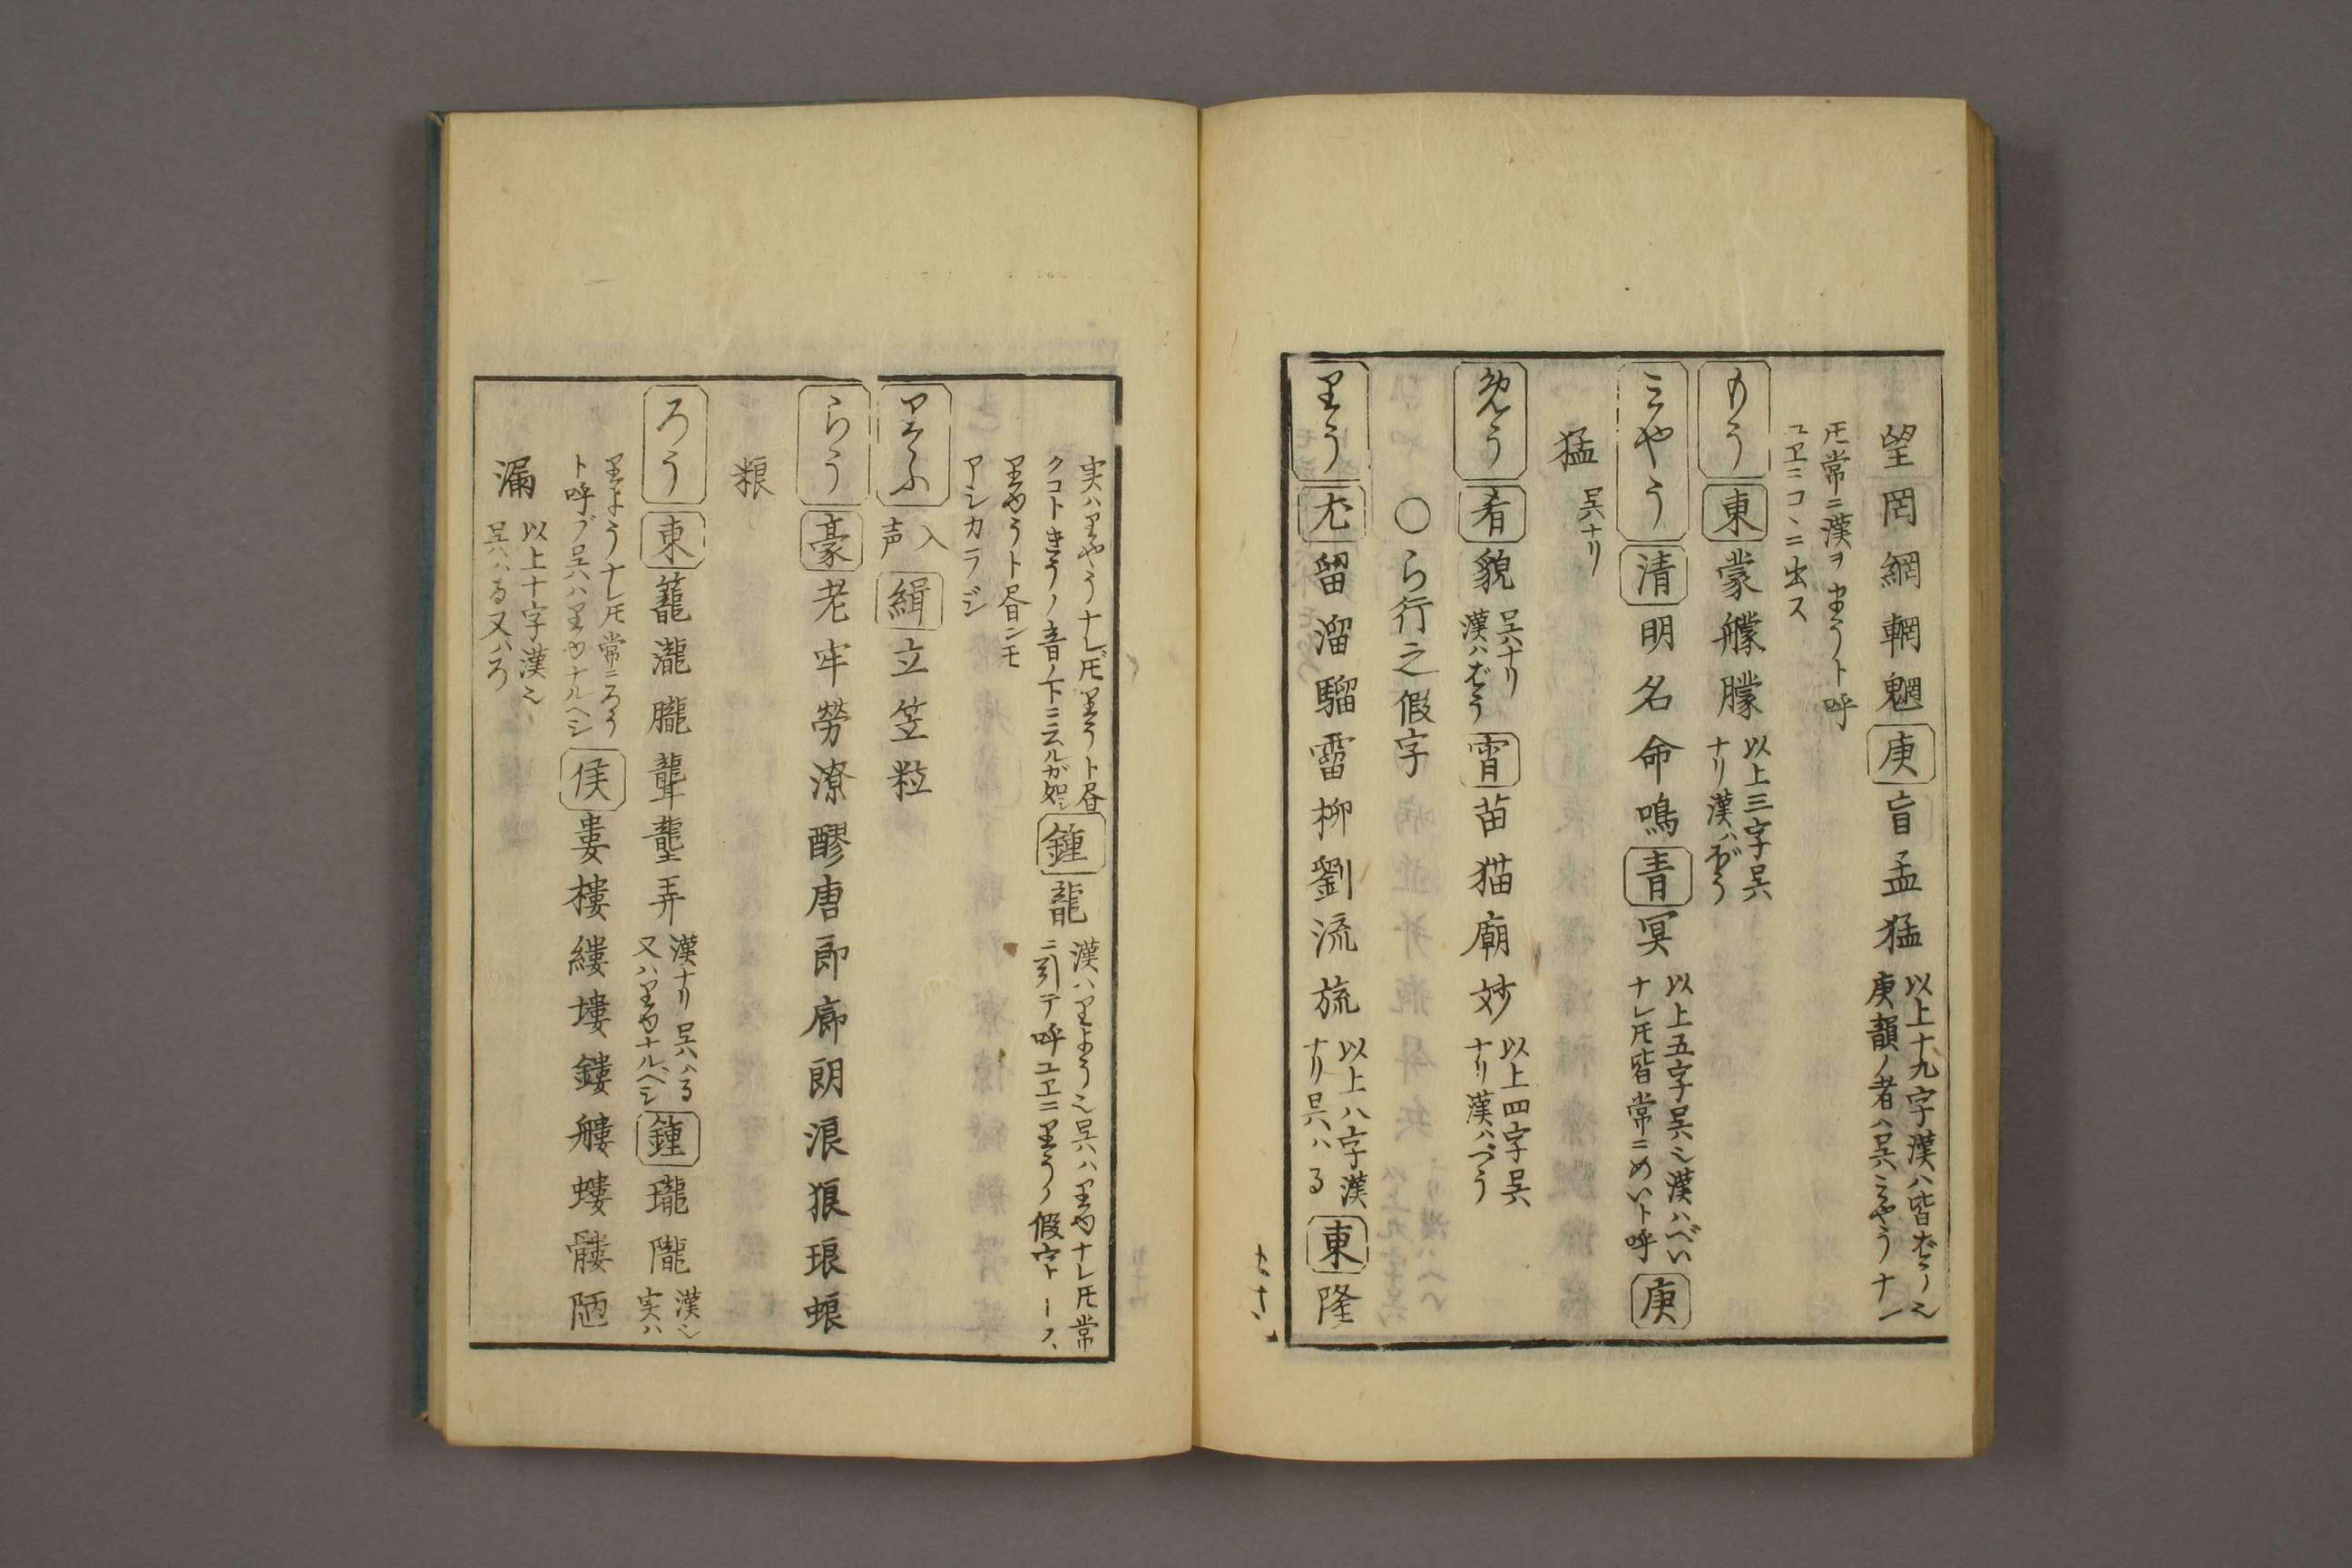 望罔網輞魍庚盲孟猛以上十九字漢ハ皆ばう也
庚韻ノ者ハ呉ミやうナレ
𪜈常ニ漢ヲまうト呼
ユヱニコヽニ出ス
もう東蒙艨朦以上三字呉
ナリ漢ハぼう
ミやう清明名命鳴青冥以上五字呉也漢ハべい
ナレ𪜈皆常ニめいト呼庚
猛呉ナリ
めう肴貌呉ナリ
漢ハばう宵苗猫廟妙以上四字呉
ナリ漢ハべう
〇ら行之假字
りう尤留溜騮霤柳劉流旒以上八字漢
ナリ呉ハる東隆
実ハりやうナレ𪜈りうト唇
クコトきうノ音ノ下ニ云ルガ如シ鍾龍漢ハりよう也呉ハりゆナレ𪜈常
ニ引テ呼ユヱニりうノ假字トース、
りゆうト唇ンモ
アシカラジ
りふ入声緝立笠粒
らう豪老牢勞潦醪唐郎廊朗浪狼琅蜋
粮
ろう東籠瀧朧聾礱弄漢ナリ呉ハる
又ハりゆナルベシ鍾瓏隴漢也
実ハ
りようナレ𪜈常ニろう
ト呼ブ呉ハりゆナルヘシ侯婁樓縷塿鏤艛螻髏陋
漏以上十字漢也
呉ハる又ハろ